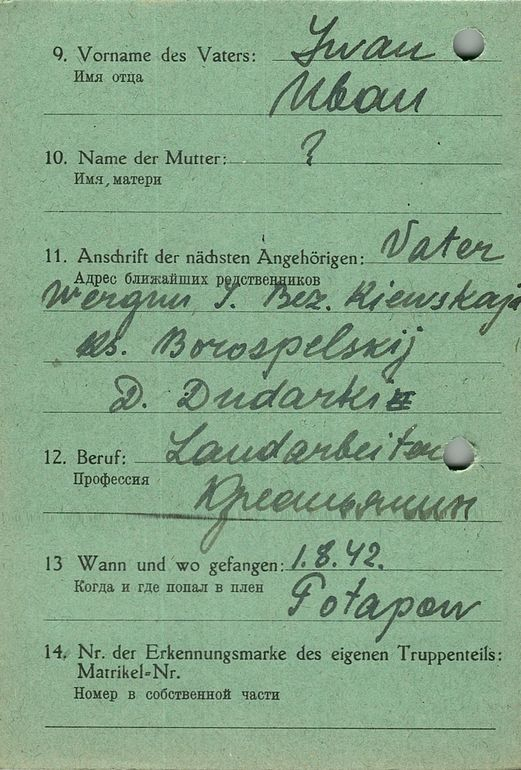 9. Vorname des Vaters: Iwan
Имя отца
Иван
10. Name der Mutter: ?
Имя матери
11. Anschrift der nächsten Angehörigen: Vater
Адрес ближайших родственников
Wergun I. Bez. Kiewskaja
Ks. Borospelskij
D. Dudarki
12. Beruf: Landarbeiter
Профессия
Крестьянин
13 Wann und wo gefangen: 1.8.42.
Когда и где попал в плен
Potapow
14. Nr. der Erkennungsmarke des eigenen Truppenteils:
Matrikel=Nr.
Номер в собственной части